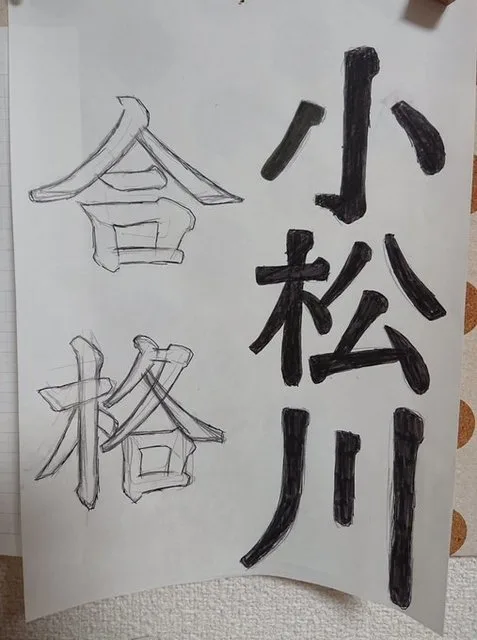 小松川
合格